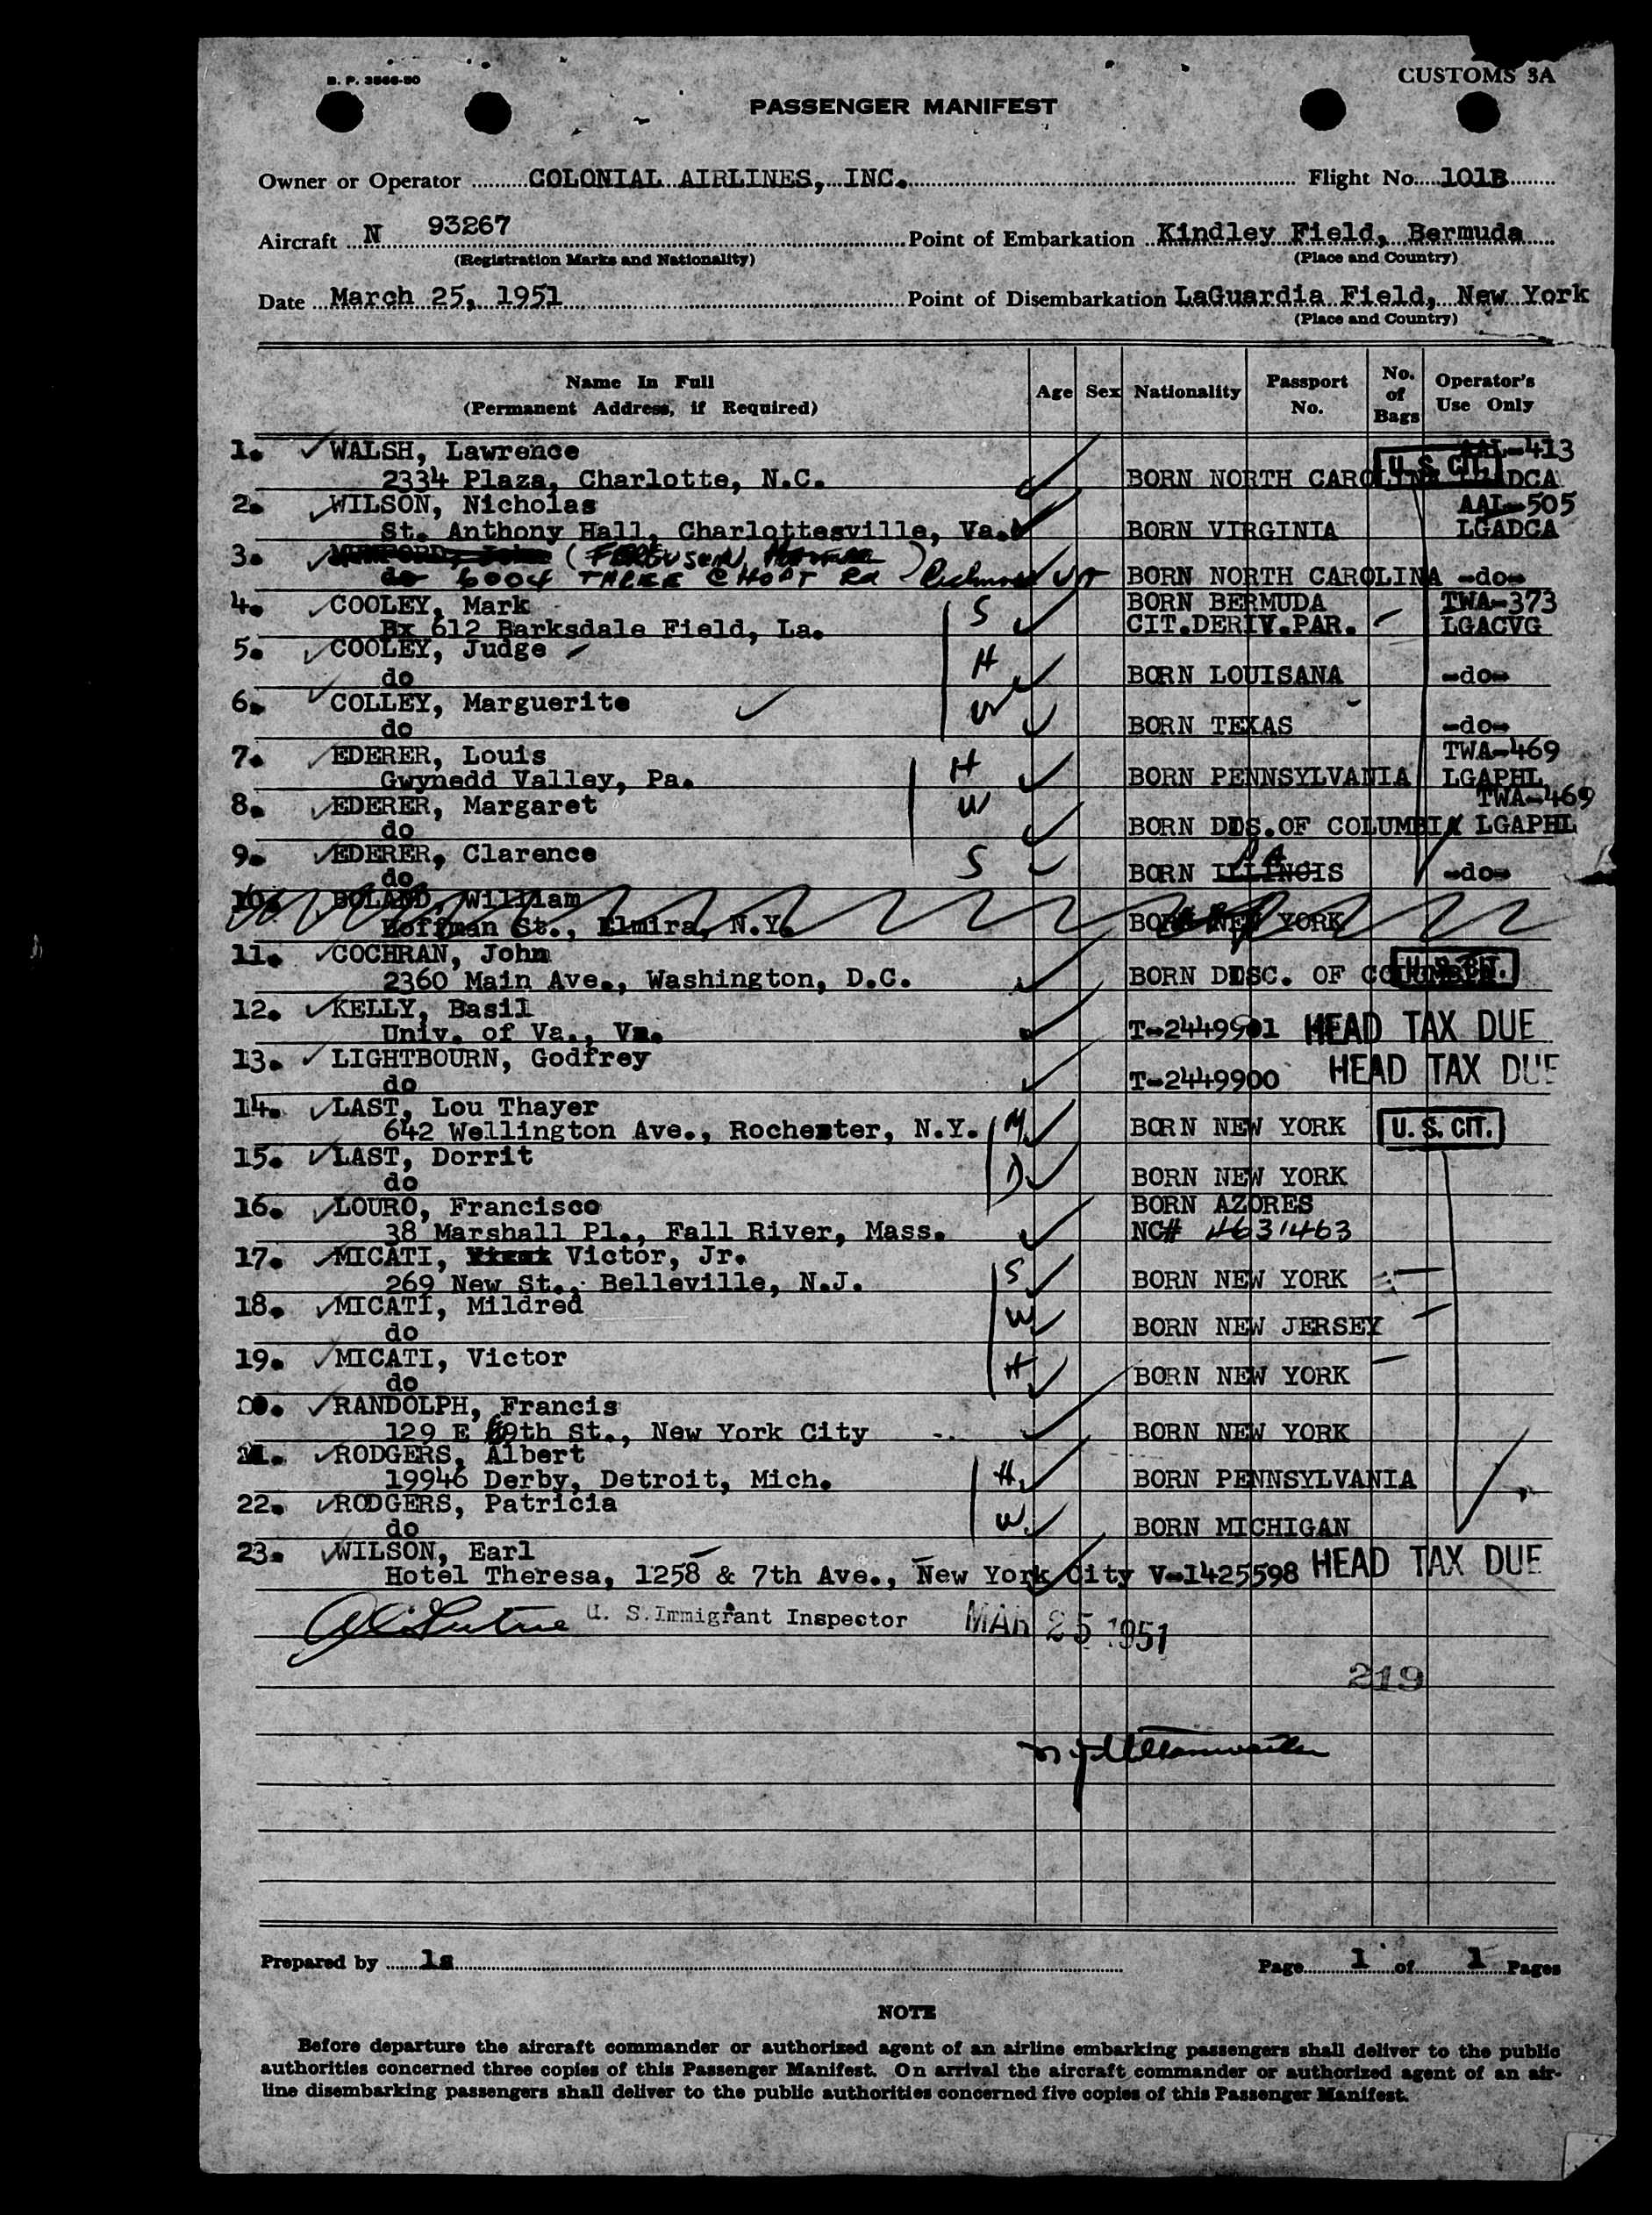 B. P. 3566-50
CUSTOMS 3A
PASSENGER MANIFEST
Owner or Operator COLONIAL AIRLINES, INC. Flight No. 101B
Aircraft N 93267 Point of Embarkation Kindley Field, Bermuda
(Registration Marks and Nationality) (Place and Country)
Date March 25, 1951 Point of Disembarkation LaGuardia Field, New York
(Place and Country)
Name In Full
(Permanent Address, if Required)
Age Sex Nationality
Passport No.
No. of Bags
Operator's Use Only
1. WALSH, Lawrence AAL-413
2334 Plaza, Charlotte, N.C. BORN NORTH CAROLINA U. S. CIT. LGADCA
2. WILSON, Nicholas AAL-505
St. Anthony Hall, Charlottesville, Va. BORN VIRGINIA LGADCA
3. (FERGUSON, )
do 6004 THREE CHOPT Rd Richmond VA BORN NORTH CAROLINA -do-
4. COOLEY, Mark S BORN BERMUDA TWA-373
Bx 612 Barksdale Field, La. CIT.DERIV.PAR. LGACVG
5. COOLEY, Judge H
do BORN LOUISANA -do-
6. COLLEY, Marguerite W
do BORN TEXAS -do-
7. EDERER, Louis H TWA-469
Gwynedd Valley, Pa. BORN PENNSYLVANIA LGAPHL
8. EDERER, Margaret W TWA-469
do BORN DIS.OF COLUMBIA LGAPHL
9. EDERER, Clarence S PA
do BORN ILLINOIS -do-
10. BOLAND, William
Hoffman St., Elmira, N.Y. BORN NEW YORK
11. COCHRAN, John
2360 Main Ave., Washington, D.C. BORN DISC. OF COLUMBIA U. S. CIT.
12. KELLY, Basil
Univ. of Va., Va. T-2449901 HEAD TAX DUE
13. LIGHTBOURN, Godfrey
do T-2449900 HEAD TAX DUE
14. LAST, Lou Thayer
642 Wellington Ave., Rochester, N.Y. M BORN NEW YORK U. S. CIT.
15. LAST, Dorrit
do D BORN NEW YORK
16. LOURO, Francisco BORN AZORES
38 Marshall Pl., Fall River, Mass. NC# 4631463
17. MICATI, Victor, Jr.
269 New St., Belleville, N.J. S BORN NEW YORK
18. MICATI, Mildred
do W BORN NEW JERSEY
19. MICATI, Victor
do H BORN NEW YORK
20. RANDOLPH, Francis
129 E 69th St., New York City BORN NEW YORK
21. RODGERS, Albert
19946 Derby, Detroit, Mich. H. BORN PENNSYLVANIA
22. RODGERS, Patricia
do W. BORN MICHIGAN
23. WILSON, Earl
Hotel Theresa, 1258 & 7th Ave., New York City V-1425598 HEAD TAX DUE
U. S. Immigrant Inspector MAR 25 1951
219
Prepared by ls Page 1 of 1 Pages
NOTE
Before departure the aircraft commander or authorized agent of an airline embarking passengers shall deliver to the public
authorities concerned three copies of this Passenger Manifest. On arrival the aircraft commander or authorized agent of an air-
line disembarking passengers shall deliver to the public authorities concerned five copies of this Passenger Manifest.